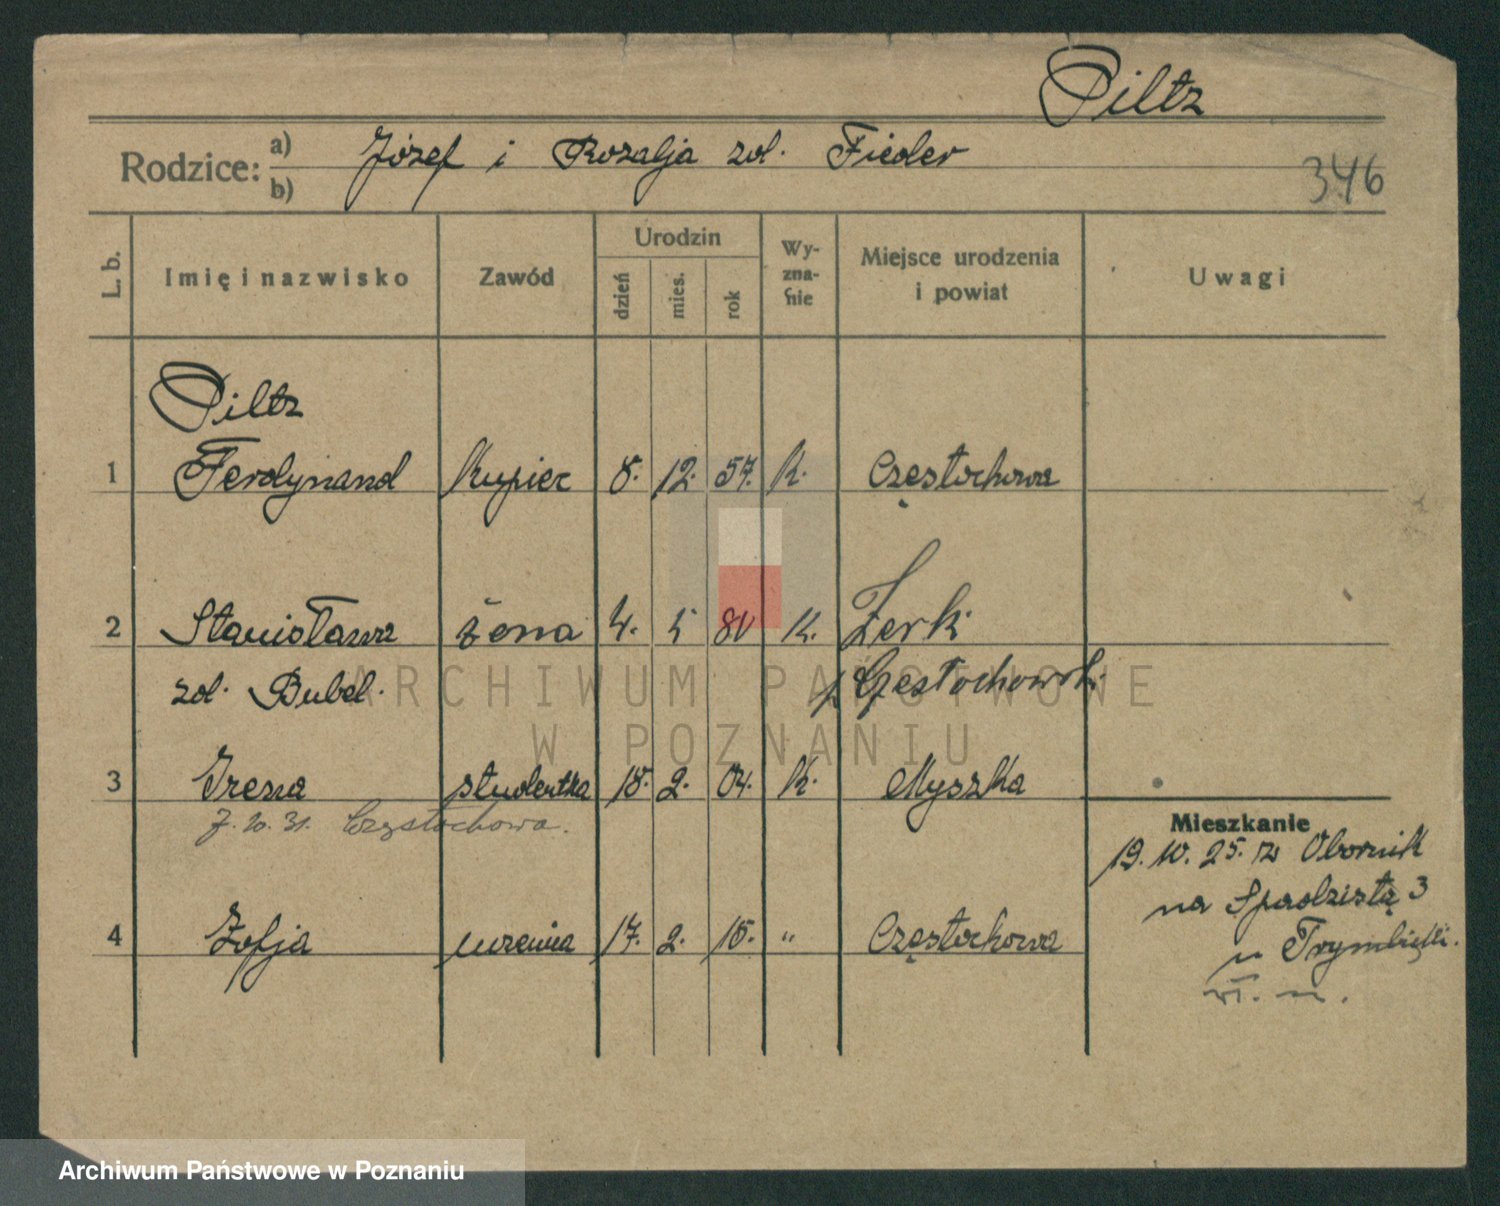 Piltz
Rodzice: a) Józef i Rozalja zol. Fiedler
b)
346
L. b. Imię i nazwisko Zawód Urodzin dzień mies. rok Wy-zna-nie Miejsce urodzenia i powiat Uwagi
Piltz
1 Ferdynand Kupiec 8. 12. 57. K. Częstochowa
2 Stanisława żona 4. 5 80 K. Żerki
zol. Bubel. p. Częstochowski
3 Irena studentka 18. 2. 04. K. Myszka
7. 10. 31. Częstochowa.
Mieszkanie
19. 10. 25. z Obornik
na Spadzistą 3
4 Zofja uczenica 17. 2. 15. " Częstochowa
u Trymbicki.
ARCHIWUM PAŃSTWOWE
W POZNANIU
Archiwum Państwowe w Poznaniu